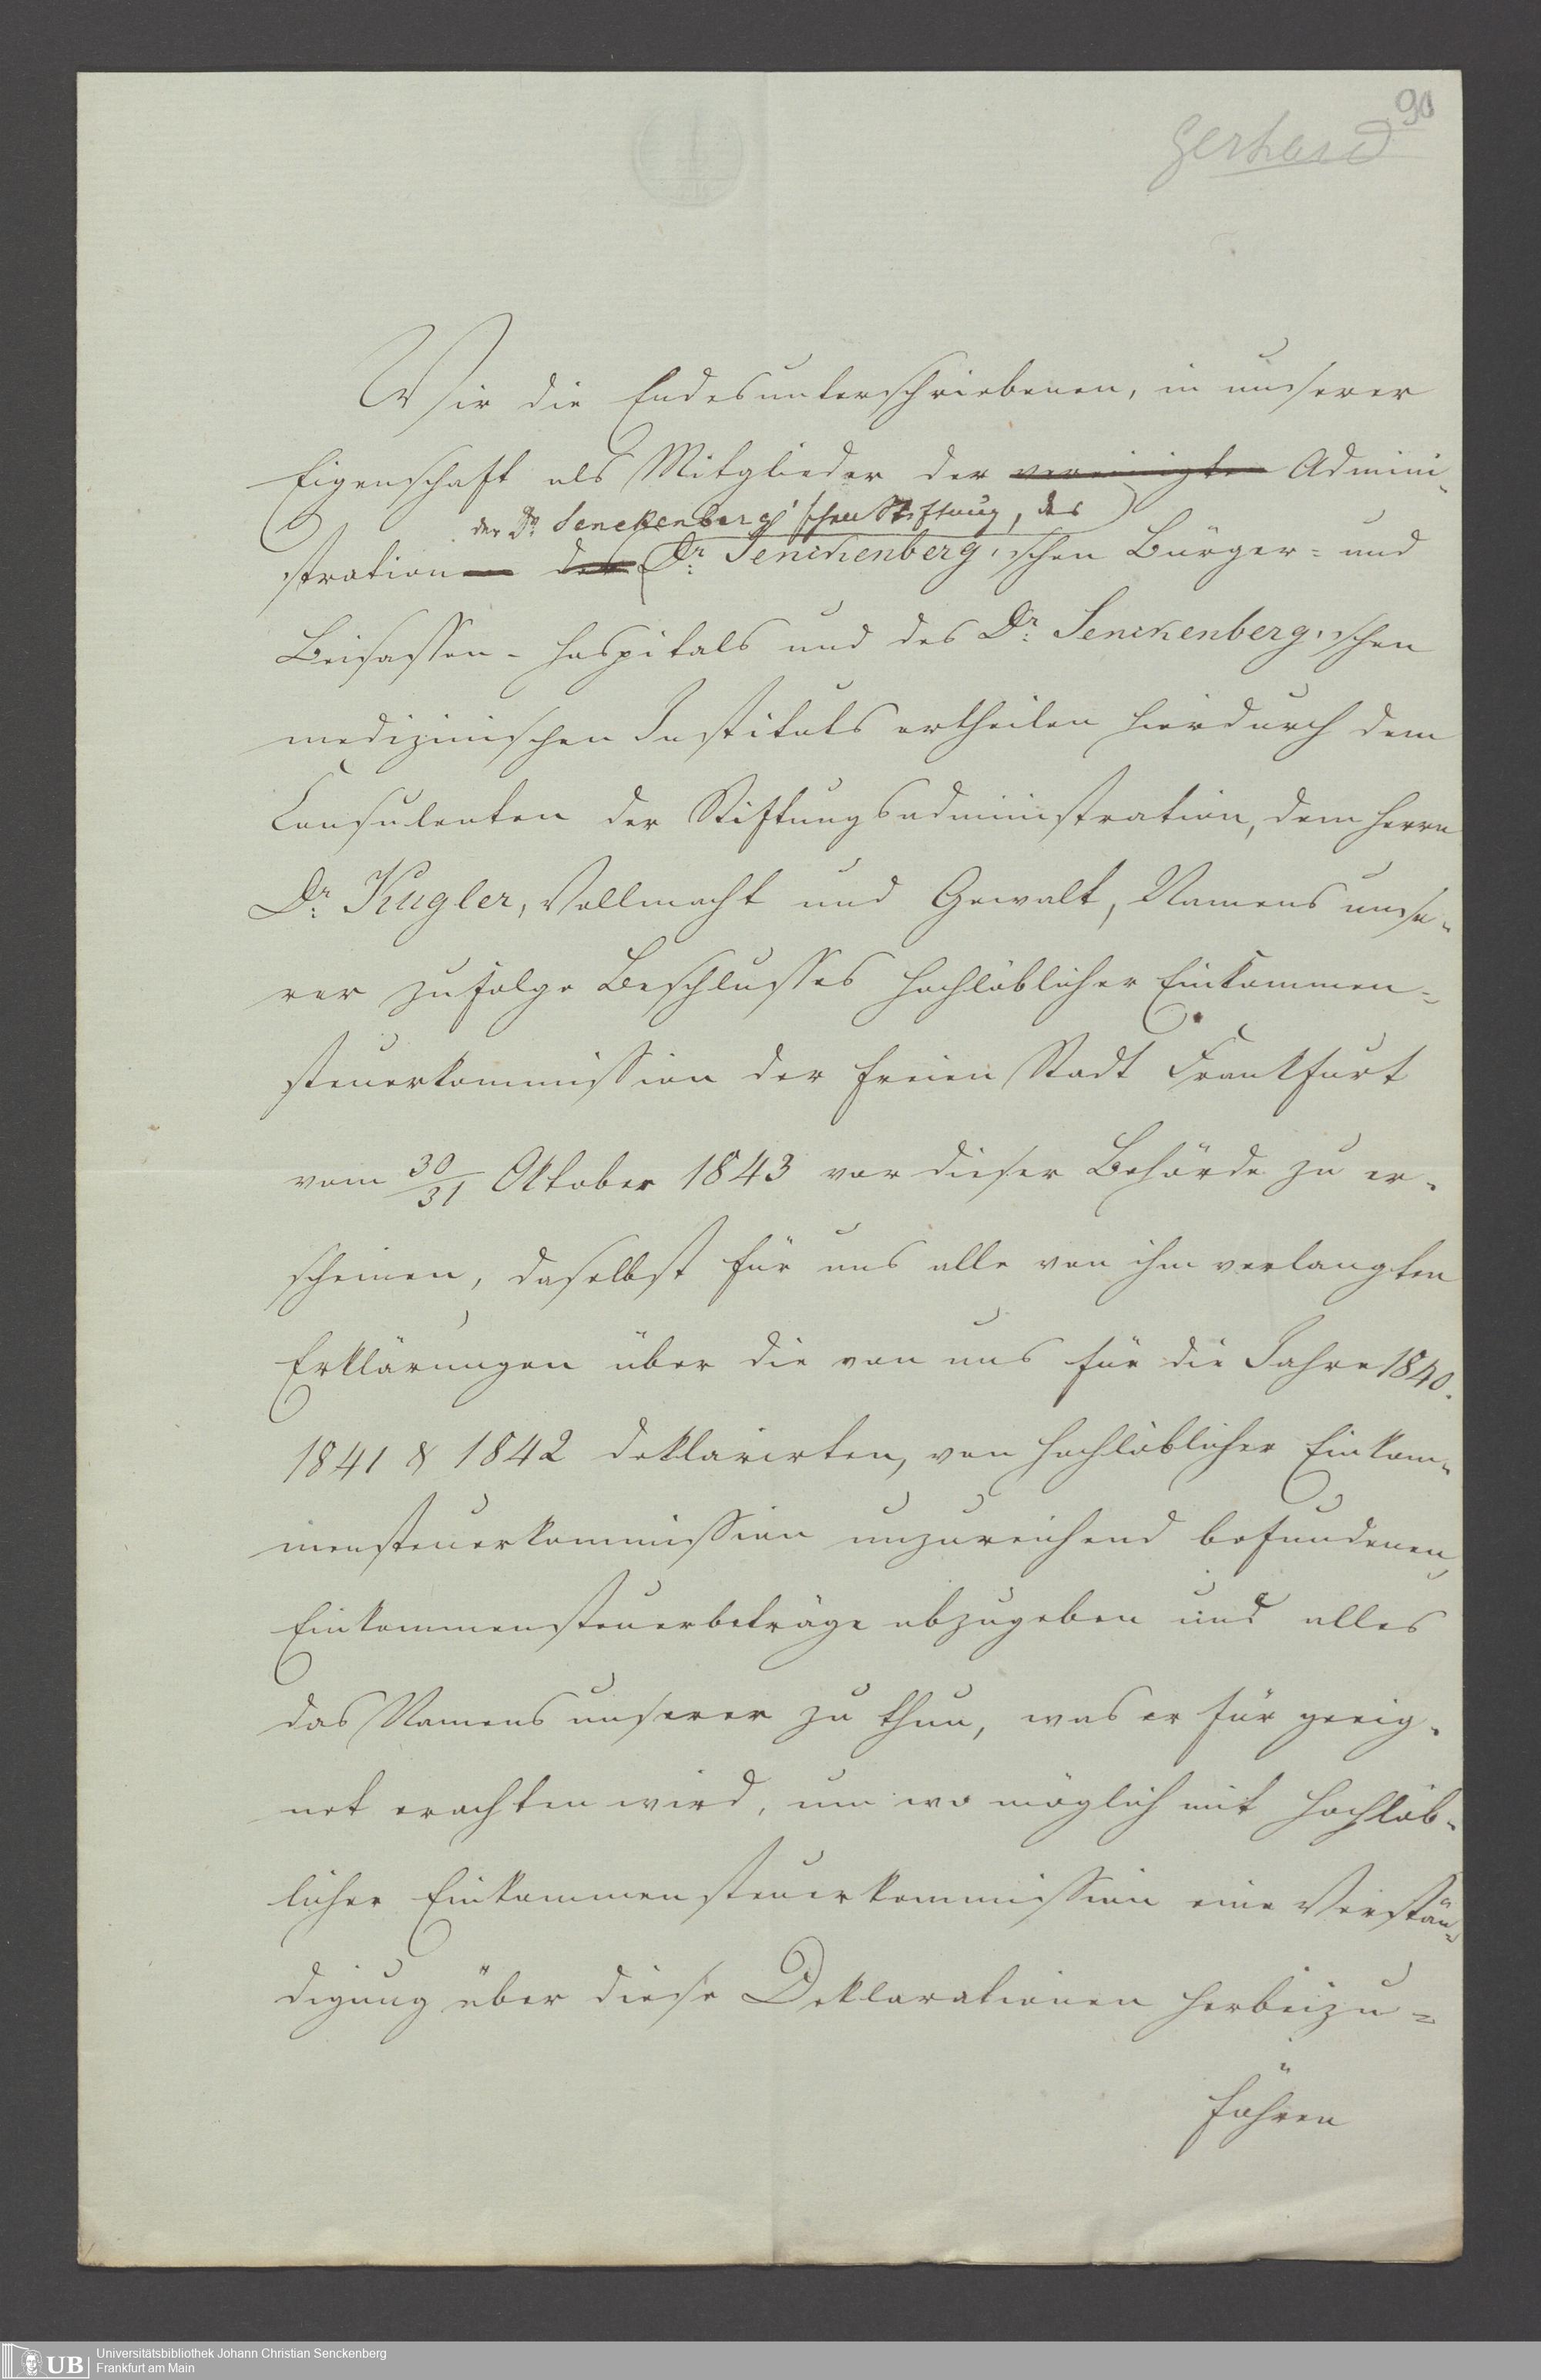 90
Gerhard
Wir die Endesunterschriebenen, in unserer
Eigenschaft als Mitglieder der vereinigten Admini-
der Dr. Senckenberg'schen Stiftung, des
stration der Dr. Senckenberg'schen Bürger- und
Beisassen-Hospitals und des Dr. Senckenberg'schen
medizinischen Instituts ertheilen hierdurch dem
Consulenten der Stiftungsadministration, dem Herrn
Dr. Kugler, Vollmacht und Gewalt, Namens unse-
rer zufolge Beschlusses hochlöblicher Einkommen-
steuerkommission der freien Stadt Frankfurt
vom 30/31 Oktober 1843 vor dieser Behörde zu er-
scheinen, daselbst für uns alle von ihm verlangten
Erklärungen über die von uns für die Jahre 1840.
1841 & 1842 deklarirten, von hochlöblicher Einkom-
mensteuerkommission unzureichend befundenen,
Einkommensteuerbeträge abzugeben und alles
das Namens unserer zu thun, was er für geeig-
net erachten wird, um wo möglich mit hochlöb-
licher Einkommensteuerkommission eine Verstän-
digung über diese Deklarationen herbeizu-
führen
UB
Universitätsbibliothek Johann Christian Senckenberg
Frankfurt am Main